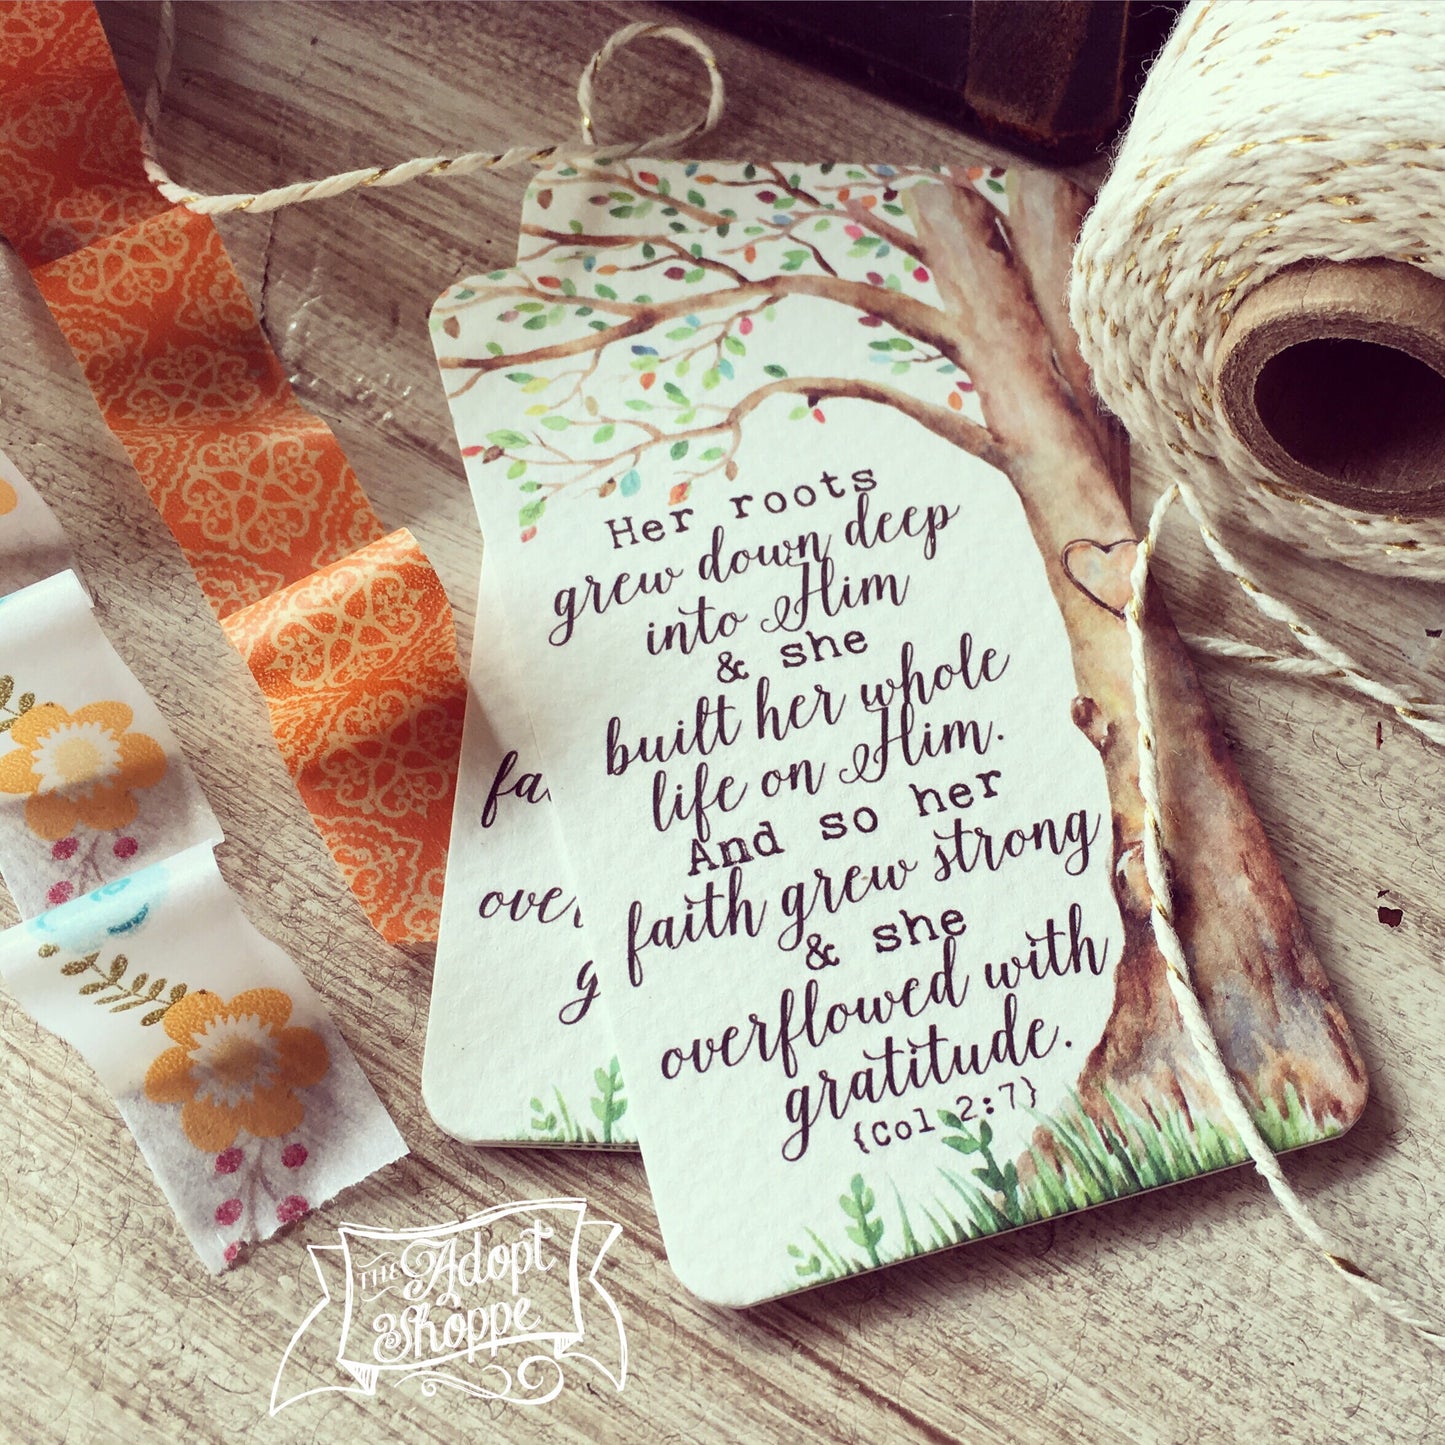 Her roots
grew down deep
into Him
& she
built her whole
life on Him.
And so her
faith grew strong
& she
overflowed with
gratitude.
{Col 2:7}
fa
over
g
THE Adopt
Shoppe